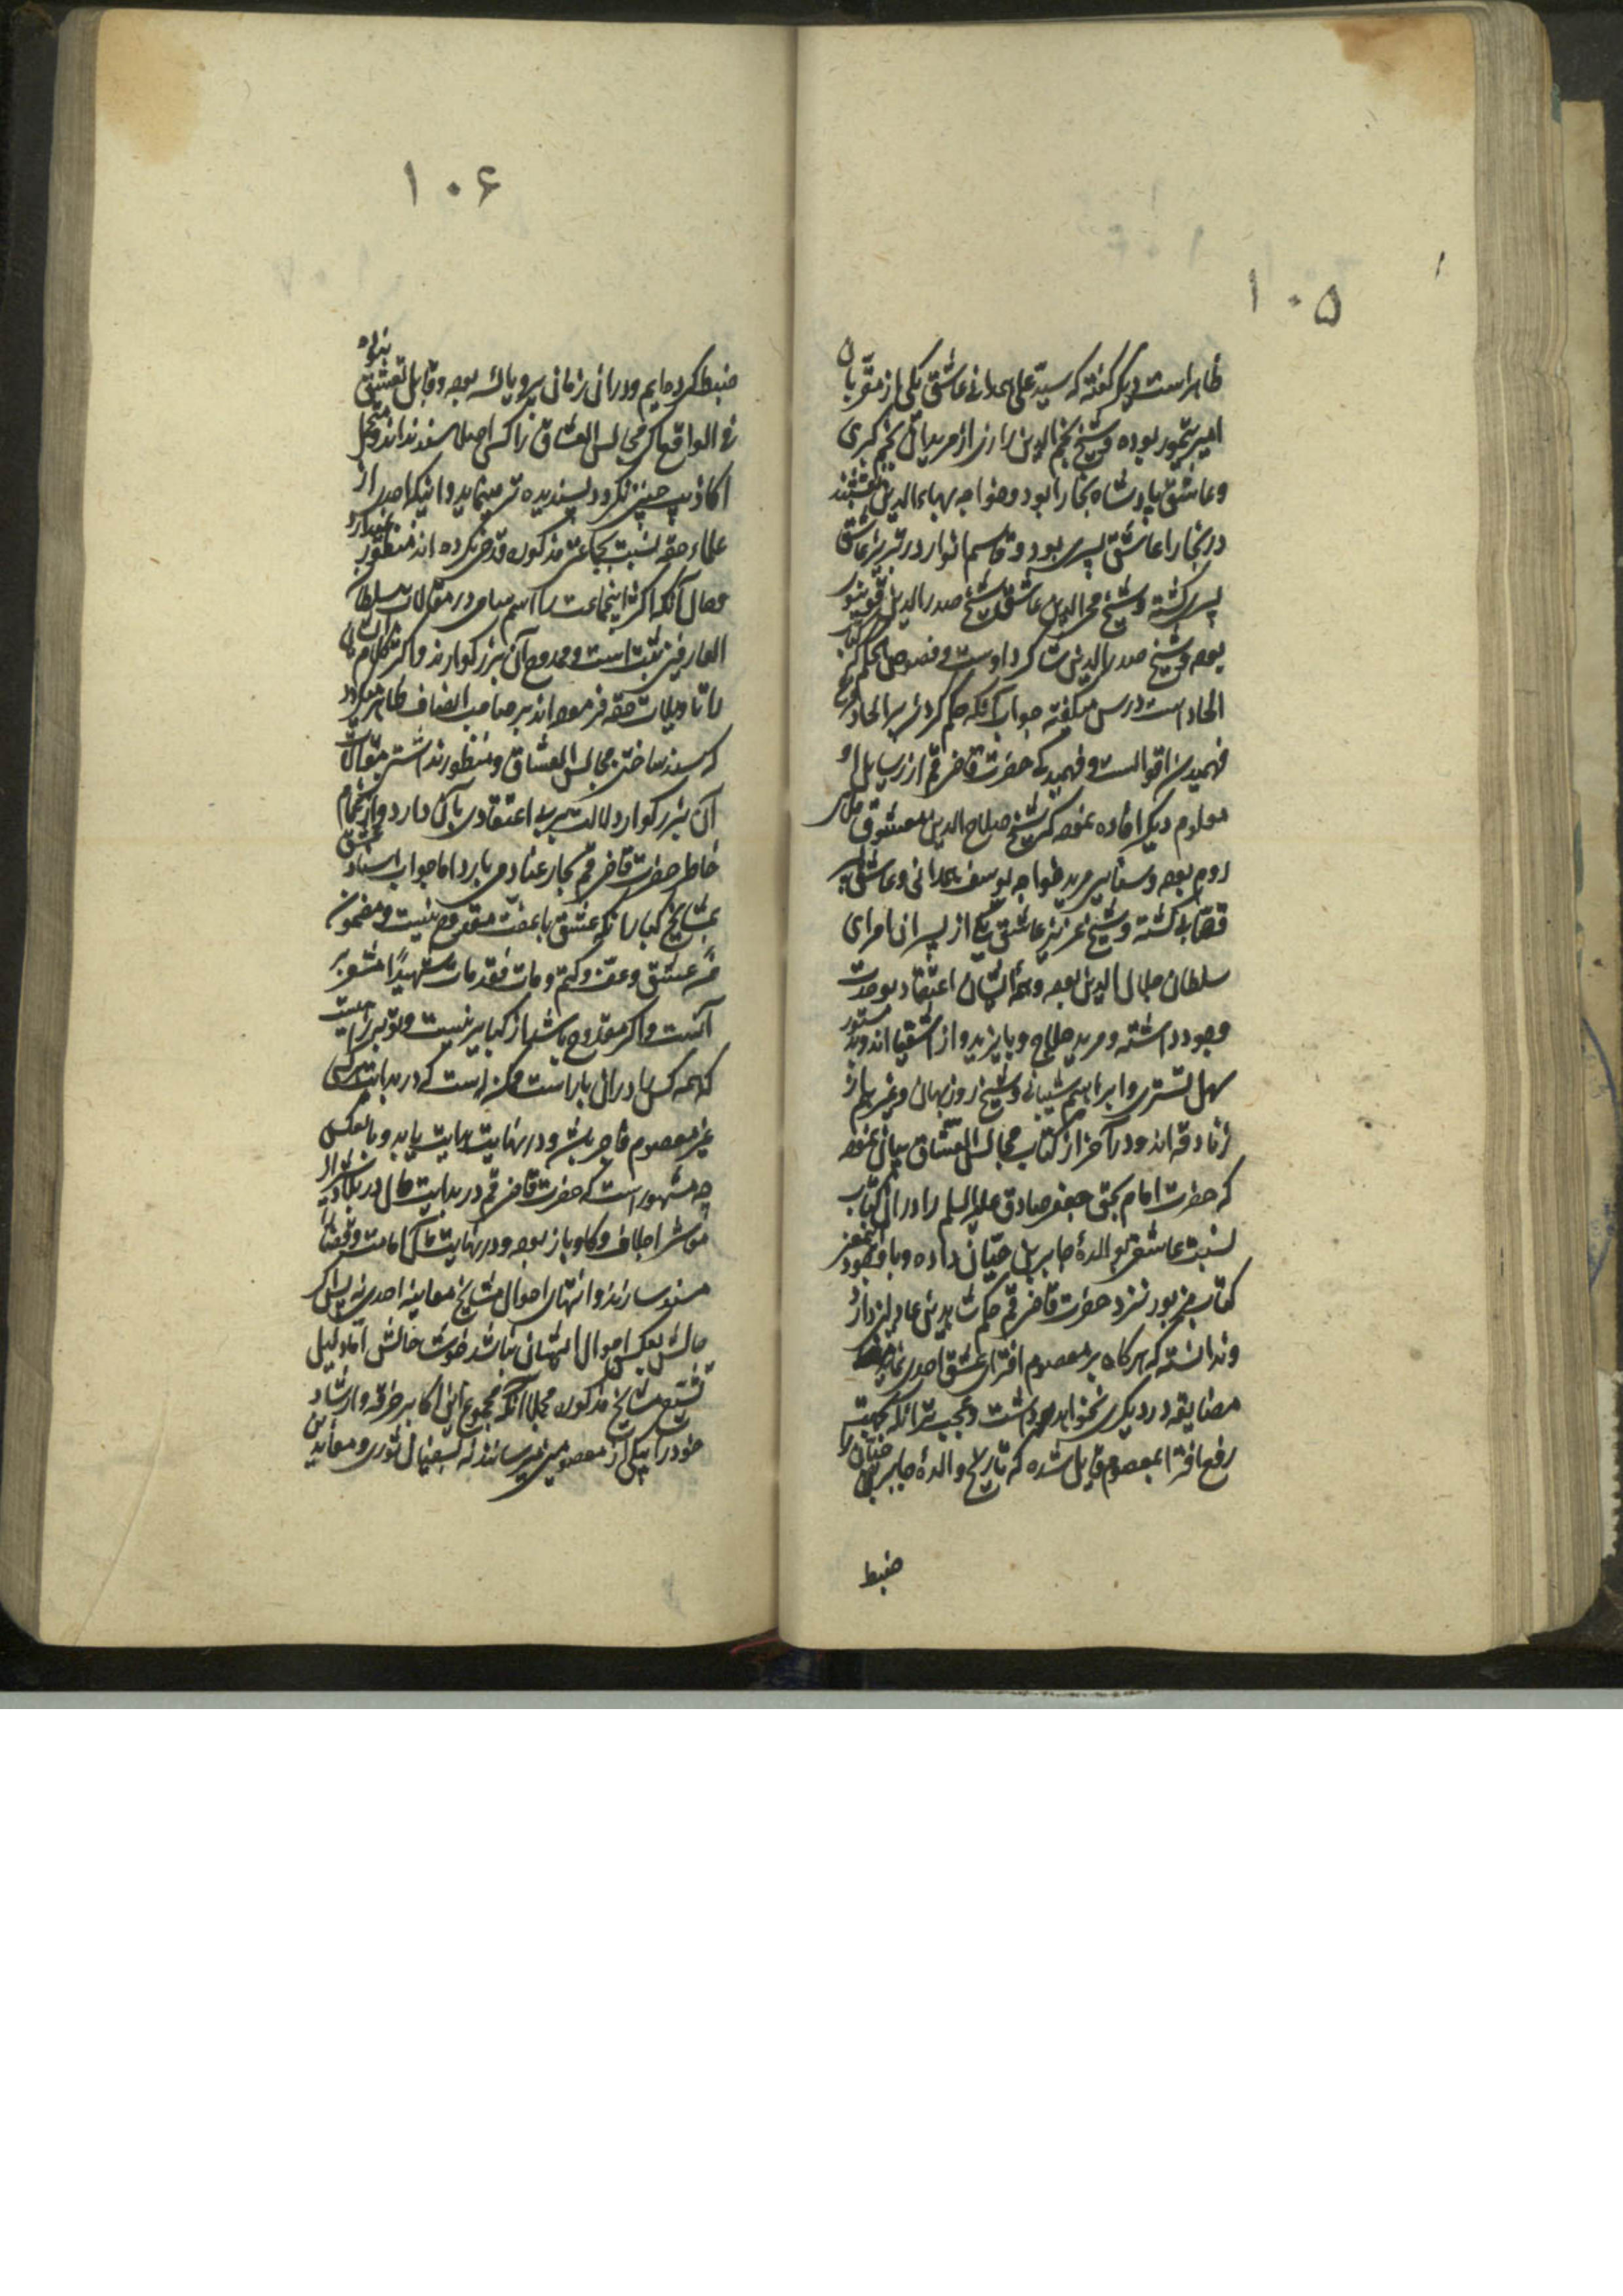 ۱۰۵
ظاهر است دیگر گفته که سید علی همدانی عاشق یکی از مقربان
امیر تیمور بوده و شیخ نجم الدین رازی از مریدان نجم کبری
و عاشق پادشاه بخارا بود و خواجه بهاءالدین نقشبند
در بخارا عاشق پسری بود و قاسم انوار در تبریز عاشق
پسری گشته و شیخ محی الدین عاشق شیخ صدرالدین قونیوی
بوده و شیخ صدرالدین شاگرد اوست و فصوص الحکم که کتاب
الحاد است درس میگفته جواب آنکه حکم کردن بر الحاد فرع
فهمیدن اقوالست و فهمیدگی حضرت قاضی قم از رسایل او
معلوم دیگر افاده نموده که شیخ صلاح الدین معشوق ملای
روم بوده و سنایی مرید خواجه یوسف همدانی و عاشق
قصابی گشته و شیخ عزیز عاشق یکی از پسران امرای
سلطان جلال الدین بوده و همه ایشان اعتقاد بوحدت
وجود داشته و مرید حلاج و بایزید و از اشقیا اند و
سهل تستری و ابراهیم شیبانی و شیخ روزبهان و غیرهم از
زنادقه اند و در آخر از کتاب مجالس العشاق بیان نموده
که حضرت امام بحق جعفر صادق علیه السلم را در ان کتاب
نسبت عاشقی بوالدهٔ جابر بن حیان داده و با وجود
کتاب مزبور نزد حضرت قاضی قم حکم شاهدین عادلین دارد
و ندانسته که هرگاه بر معصوم افترای عشق احدی نماید
مضایقه در دیگری نخواهد داشت و عجب تر آنکه بجهت
رفع افترا بمعصوم قایل شده که تاریخ والدهٔ جابر بن حیان را
ضبط
۱۰۶
ضبط کرده ایم و در ان زمان پیر و یائسه بوده و قابل تعشق نبوده
فی الواقع اگر مجالس العشاق را کسی اصلا سند نداند و محتمل
اکاذیب چنین نگرود پسندیده تر مینماید و اینکه احدی از
علماء حقه نسبت بجماعت مذکوره قدحی نکرده اند منظور نمیدارد
و حال آنکه اکثر اینجماعت را اسم سامی در مقالات سلطان
العارفین ثبت است و ممدوح آن بزرگوارند و اکثر کلام
را تاویلات حقه فرموده اند بر صاحب انصاف ظاهر میگردد
که سند ساختن مجالس العشاق و منظور نداشتن مقالات
آن بزرگوار دلالت بر بی اعتقادی بآن دارد و از اینجا
خاطر حضرت قاضی قم بجار عنادی میابرد اما جواب اسناد عشق
بمشایخ کبار آنکه عشق با عفت مقدوح نیست و مضمون
من عشق و عف و کتم و مات فقد مات شهیدا مشعر بر
آنست و اگر مقدوح باشد از کبایر نیست و توبه را
که همه کس را در ان باب راست ممکن است که در بدایت کسی
غیر معصوم فاجر باشد و در نهایت هدایت یابد و بالعکس
چه مشهور است که حضرت قاضی قم در بدایت حال در بلاد
معاشر اجلاف و گاوباز بوده و در نهایت حال امامت و قضا را
مسند سازند و انتهای احوال مشایخ معاینه احدی نه پس اگر
حالش بعکس احوال ایشان نباشد خوشا حالش اما دلیل
تشیع مشایخ مذکوره مجملا آنکه مجموع این اکابر خرقه و ارشاد
خود را بیکی از معصومین میرسانند نه بسفیان ثوری و معاند